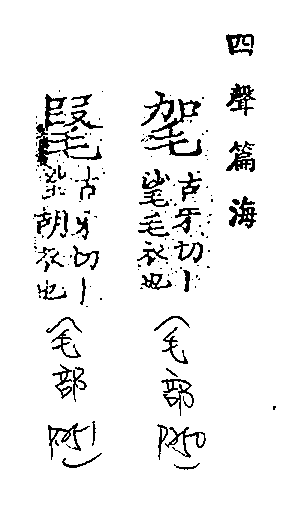 四聲篇海
毠
古牙切丨
毟毛衣也
(毛部 P.250)
古牙切丨
胡衣也
(毛部 P.251)